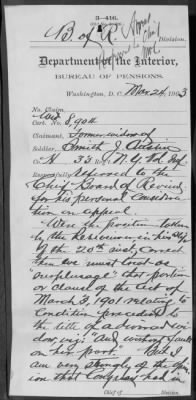 3—416.
B. of R. Division.
Appeal
Department of the Interior,
BUREAU OF PENSIONS.
Washington, D. C. Mar 24, 1903
No. Claim,
Cert. No. 8,904
Claimant, Former widow of
Soldier, Smith J. Austin
Co. H 33 Reg't N.Y. Vol. Inf.
Respectfully referred to the
Chief Board of Review
for his personal considera-
tion on appeal.
Were the position taken
by the
by the 20th inst, correct
then we must treat as
"surplusage" that portion
or clause of the act of
March 3, 1901 relating to
condition precedent to
the title of a divorced wi-
dow, viz: "and without fault
on her part." But I
am very strongly of the opin-
ion that Congress had in
Chief of
Division.